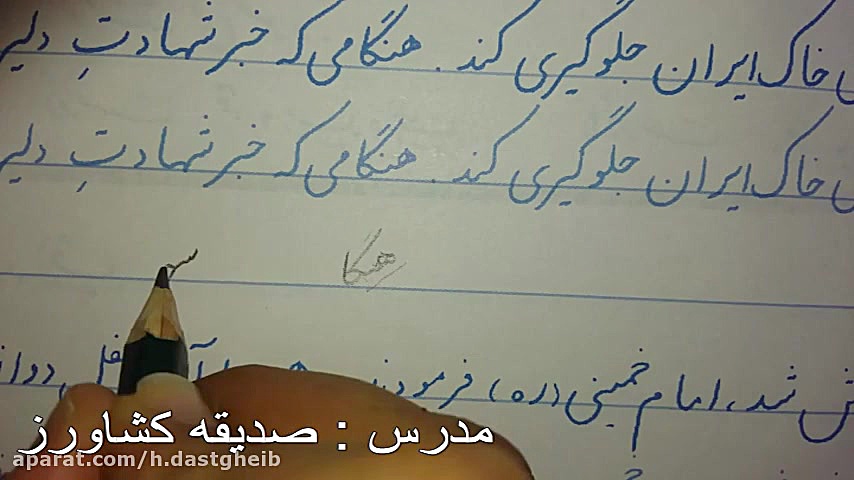 خاک ایران جلوگیری کند. هنگامی که خبر شهادتِ دلیر
خاک ایران جلوگیری کند. هنگامی که خبر شهادتِ دلیر
هنگا
شد، امام خمینی (ره) فرمودند
مدرس : صدیقه کشاورز
aparat.com/h.dastgheib